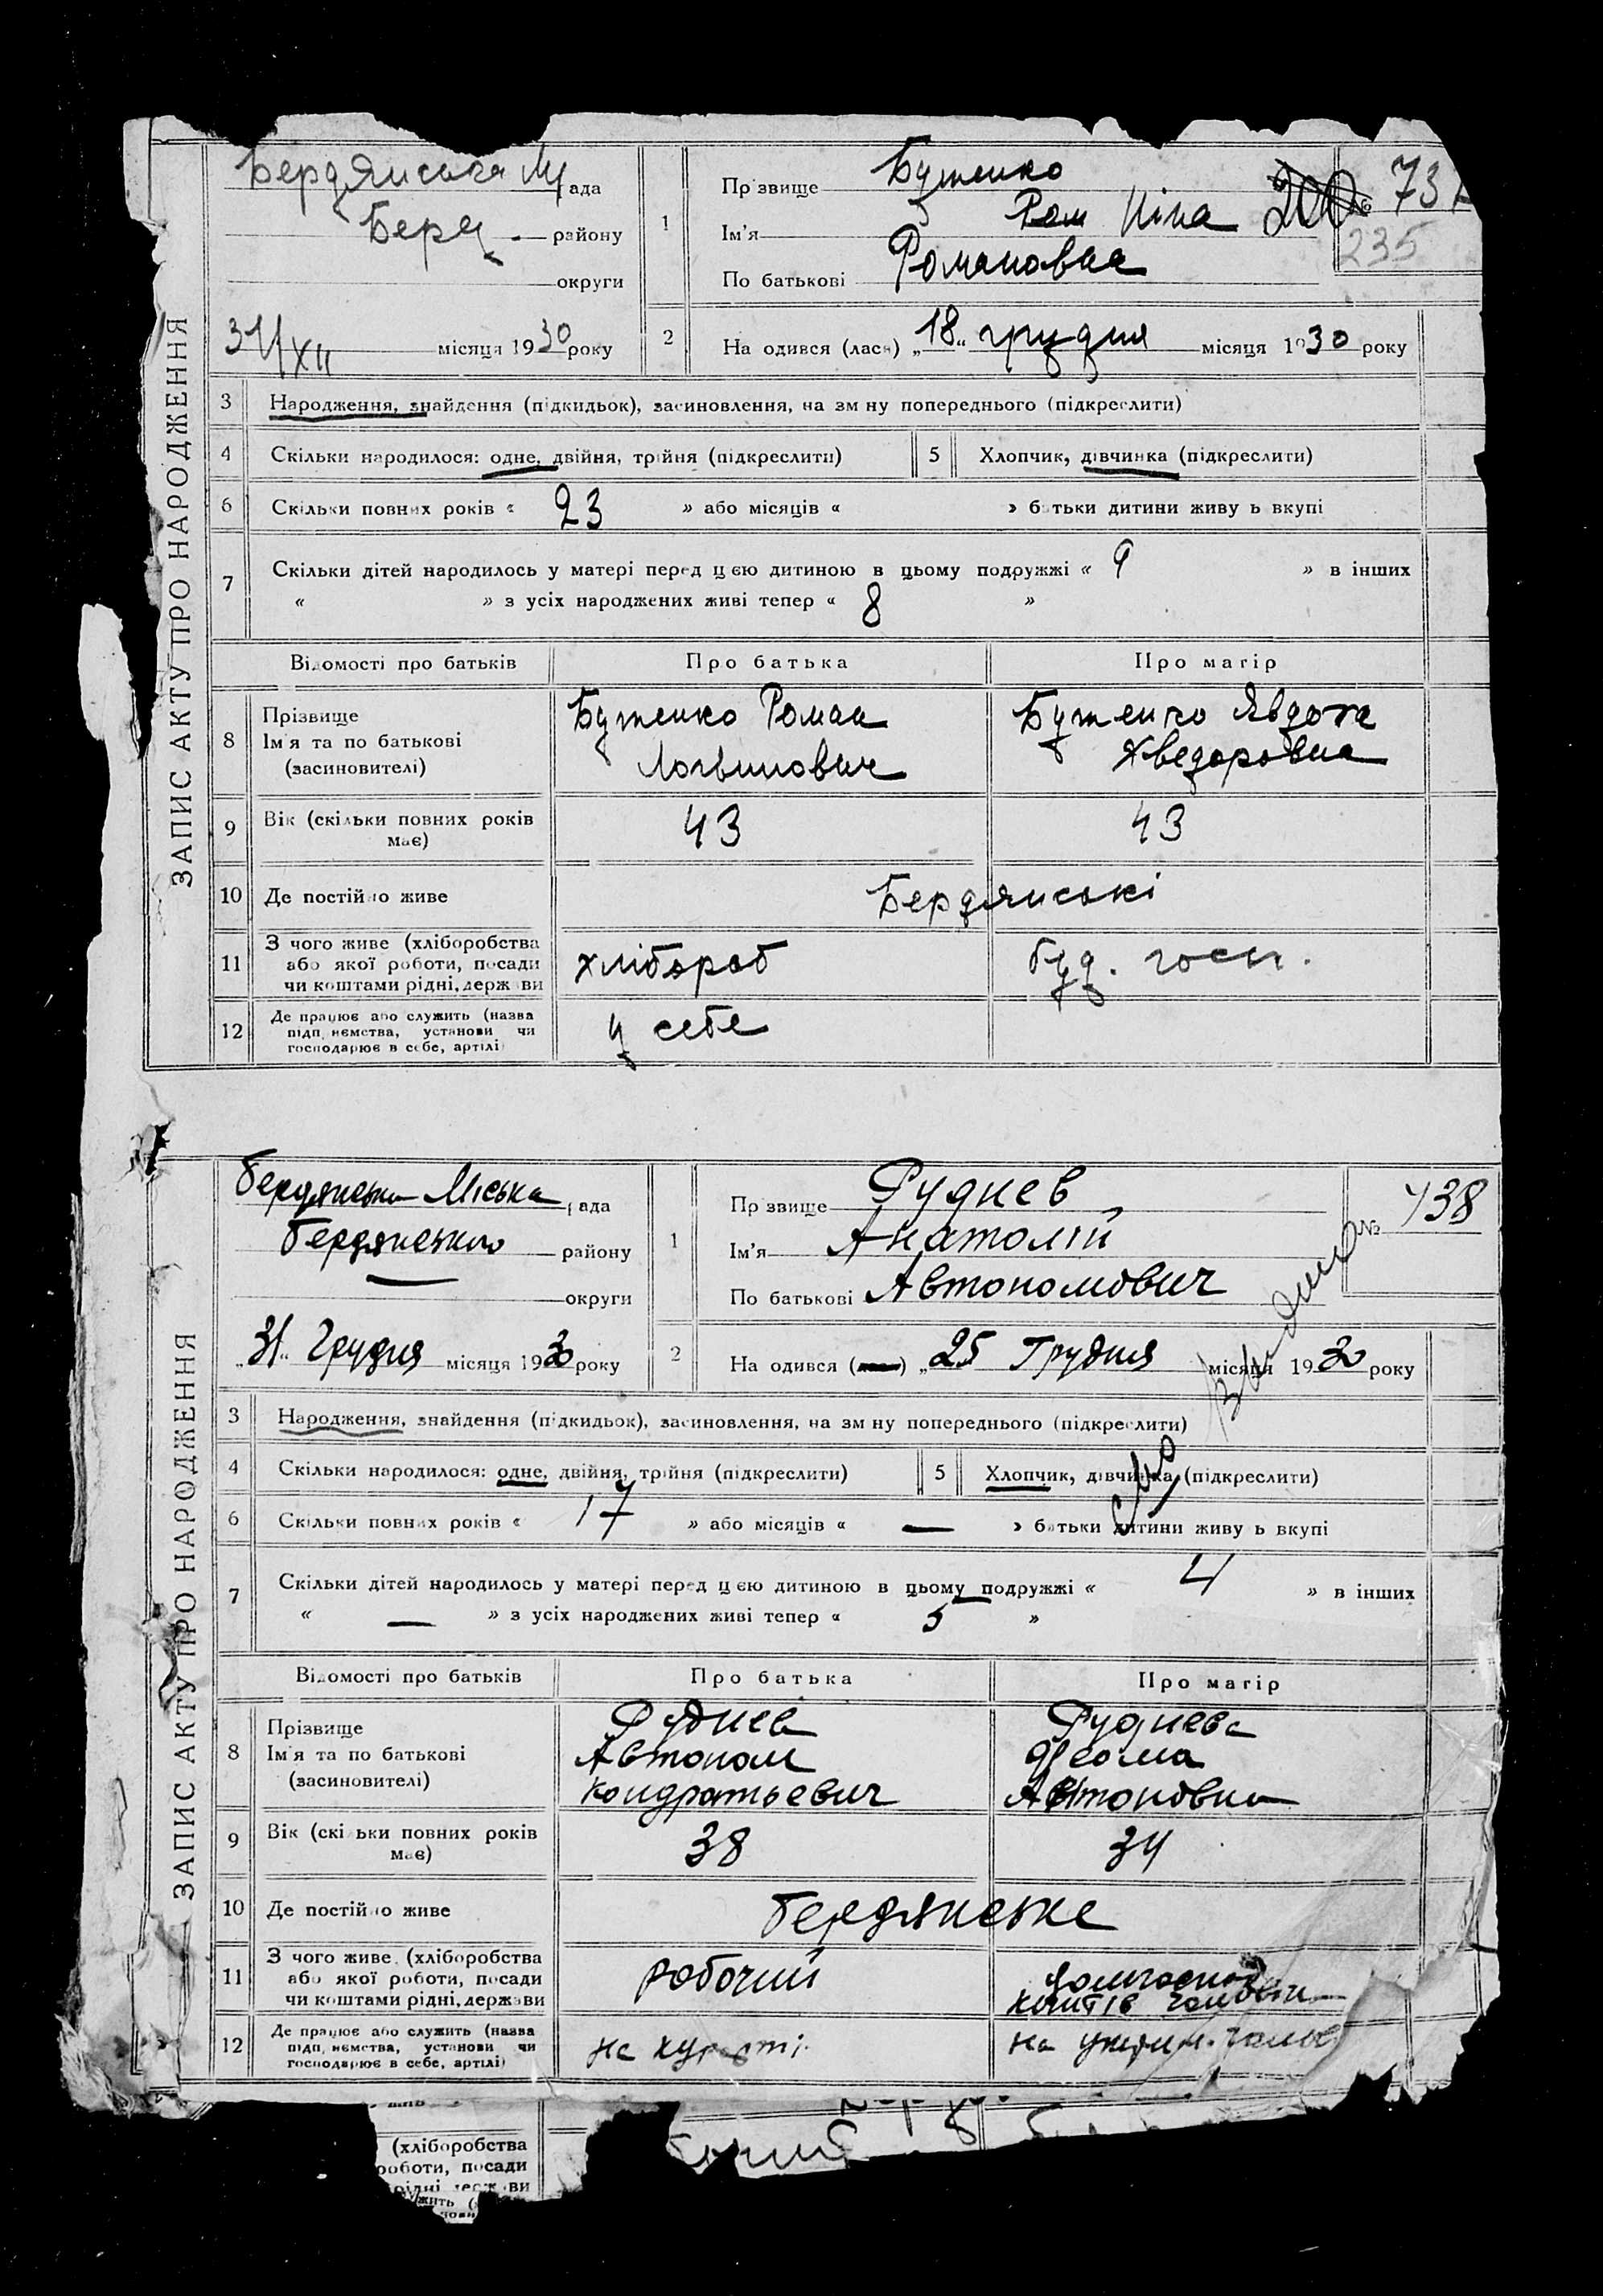 ЗАПИС АКТУ ПРО НАРОДЖЕННЯ
Бердянська М ада
Берд. району
округи
31/XII місяця 1930 року
1
Прзвище Бутенко
Ім'я Ром Ніна
По батькові Романовна
200 № 737
235
2 На одився (лася) „18“ грудня місяця 1930 року
3 Народження, знайдення (підкидьок), засиновлення, на зм ну попереднього (підкреслити)
4 Скільки народилося: одне, двійня, трійня (підкреслити) 5 Хлопчик, дівчинка (підкреслити)
6 Скільки повних років « 23 » або місяців « » батьки дитини живу ь вкупі
7 Скільки дітей народилось у матері перед цією дитиною в цьому подружжі « 9 » в інших
« » з усіх народжених живі тепер « 8 »
Відомості про батьків Про батька Про матір
8 Прізвище
Ім'я та по батькові
(засиновителі)
Бутенко Роман
Логвинович
Бутенко Явдота
Хведоровна
9 Вік (скільки повних років має) 43 43
10 Де постійно живе Бердянські
11 З чого живе (хліборобства
або якої роботи, посади
чи коштами рідні, держави
хлібороб буд. госп.
12 Де працює або служить (назва
підп. немства, установи чи
господарює в себе, артілі)
у себе
ЗАПИС АКТУ ПРО НАРОДЖЕННЯ
Бердянська Міська рада
Бердянського району
— округи
„31“ Грудня місяця 1930 року
1
Прзвище Руднев
Ім'я Анатолій
По батькові Автономович
№ 738
2 На одився „25 Грудня місяця 1930 року
3 Народження, знайдення (підкидьок), засиновлення, на зм ну попереднього (підкреслити)
4 Скільки народилося: одне, двійня, трійня (підкреслити) 5 Хлопчик, дівчинка (підкреслити)
6 Скільки повних років « 17 » або місяців « — » батьки дитини живу ь вкупі
7 Скільки дітей народилось у матері перед цією дитиною в цьому подружжі « 4 » в інших
« — » з усіх народжених живі тепер « 5 »
Відомості про батьків Про батька Про матір
8 Прізвище
Ім'я та по батькові
(засиновителі)
Руднев
Автоном
Кондратьевич
Руднева
9 Вік (скільки повних років має) 38 34
10 Де постійно живе Бердянське
11 З чого живе (хліборобства
або якої роботи, посади
чи коштами рідні, держави
робочий
12 Де працює або служить (назва
підп. немства, установи чи
господарює в себе, артілі)
на
на
(хліборобства
роботи, посади
рідні держави